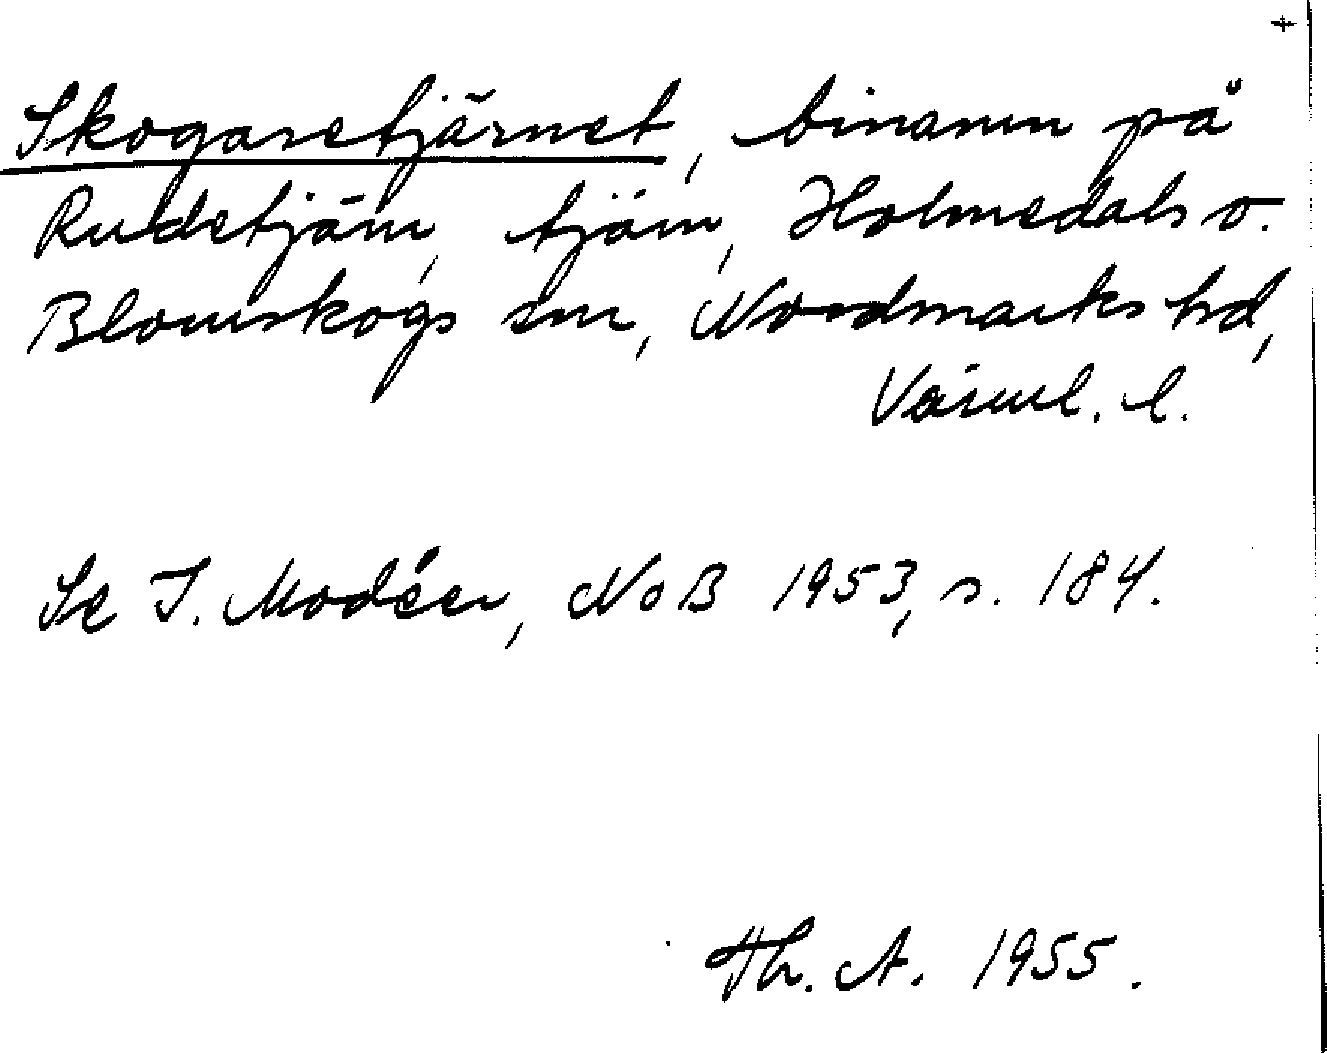 +
Skogaretjärnet, binamn på
Rudetjärn, tjärn, Holmedals o.
Blomskogs snr, Nordmarks hd,
Värml. l.
Se I. Modéer, NoB 1953, s. 184.
Th. A. 1955.